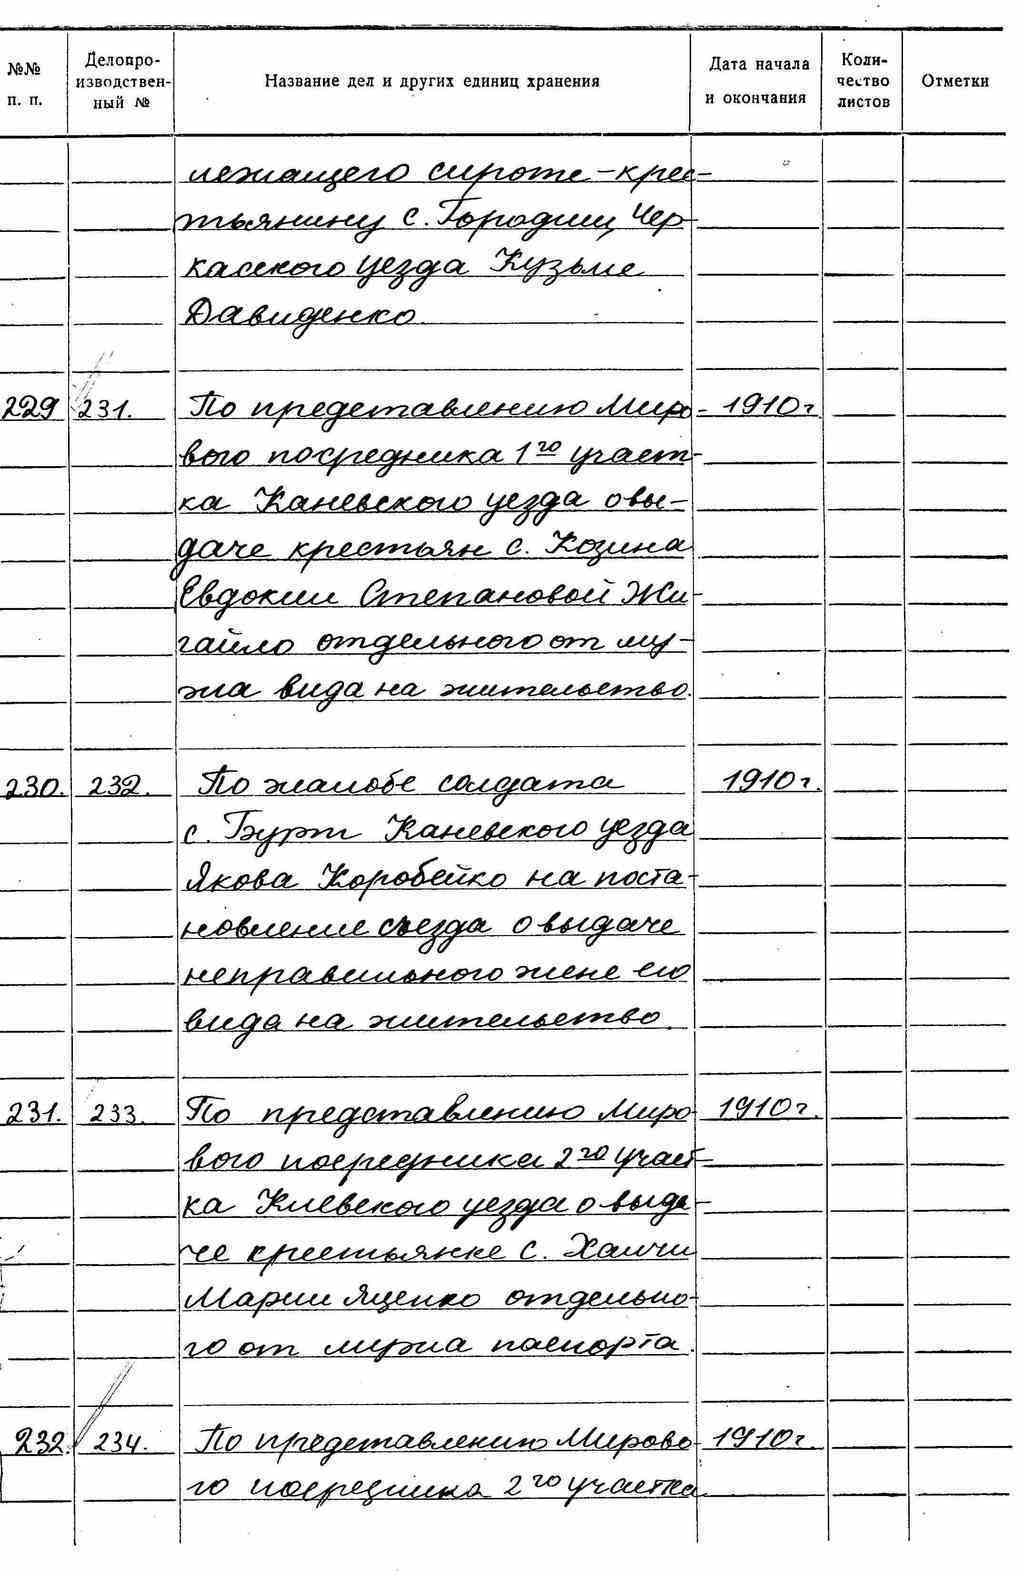 №№ п. п. Делопро-изводствен-ный № Название дел и других единиц хранения Дата начала и окончания Коли-чество листов Отметки
лежащего сироте - крес-
тьянину с. Городищ, Чер
касского уезда Кузьме
Давиденко.
229 231. По представлению Миро- 1910 г.
вого посредника 1го участ-
ка Каневского уезда о вы-
даче крестьян с. Козина
Евдокии Степановой Жи-
гайло отдельного от му-
жа вида на жительство.
230. 232. По жалобе солдата 1910 г.
с. Бурт Каневского уезда
Якова Коробейко на поста-
новление съезда о выдаче
неправильного жене его
вида на жительство.
231. 233. По представлению Миро 1910 г.
вого посредника 2го участ-
ка Киевского уезда о выда-
че крестьянке с. Халчи
Марии Яценко отдельно-
го от мужа паспорта.
232. 234. По представлению Мирово- 1910 г.
го посредника 2го участка